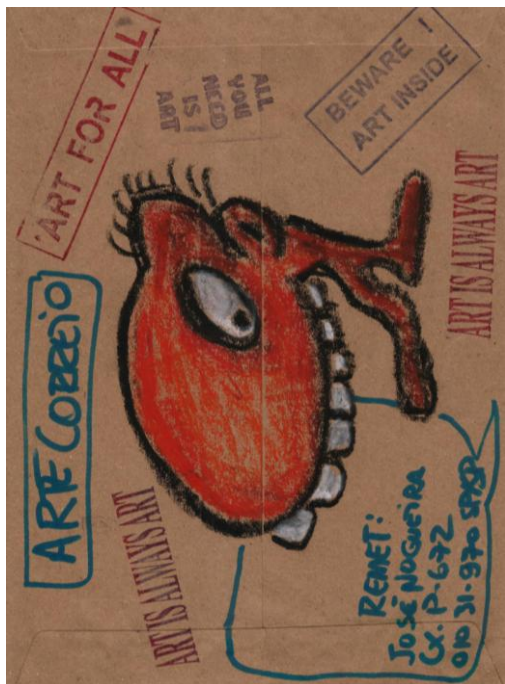 ART FOR ALL
ALL
YOU
NEED
IS
ART
BEWARE !
ART INSIDE
ARTE CORREIO
ART IS ALWAYS ART
ART IS ALWAYS ART
REMET:
JOSÉ NOGUEIRA
CX. P-672
010 31-970 SP/SP